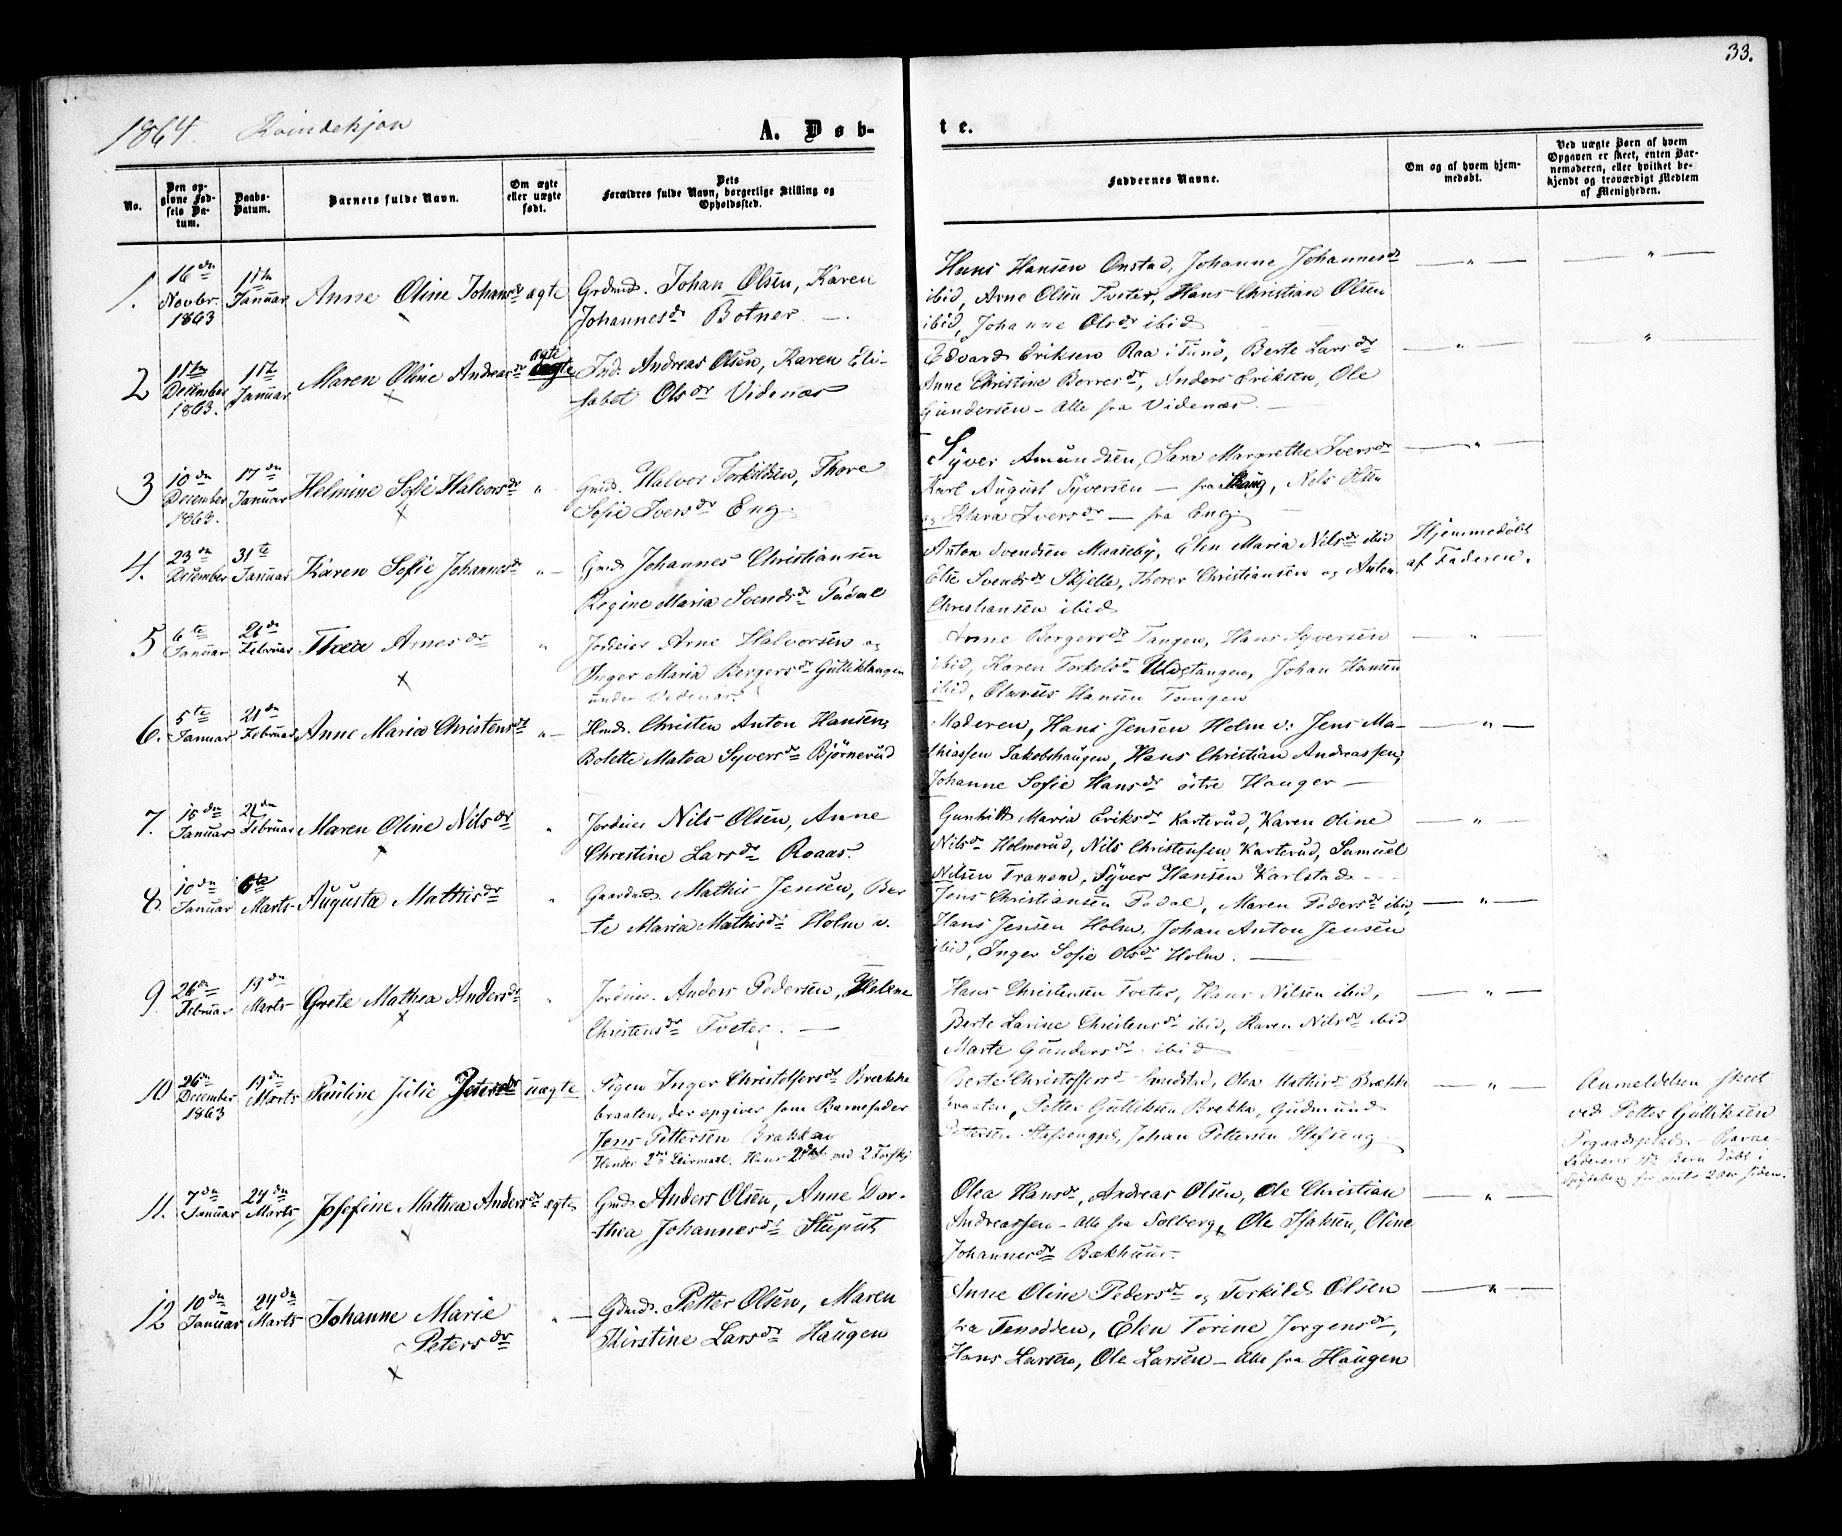 33.
1864. Kvindekjøn
A. Døb-
te.
No.
Den op-
givne Fød-
sels Da-
tum.
Daabs-
Datum.
Barnets fulde Navn.
Om ægte
eller uægte
født.
Dets
Forældres fulde Navn, borgerlige Stilling og
Opholdssted.
Faddernes Navne.
Om og af hvem hjem-
medøbt.
Ved uægte Børn af hvem
Opgaven er skeet, enten Bar-
nemoderen, eller hvilket be-
kjendt og troværdigt Medlem
af Menigheden.
1. 16de Novbr. 1863
Januar
Anne Oline Johansdr
ægte
Johan Olsen, Karen
Johannesdr Botner. —
Hans Hansen Onstad, Johanne Johannesdr
ibid, Arne Olsen Tveter, Hans Christian Olsen
ibid, Johanne Olsdr ibid
— " —
— " —
2 December 1863.
Januar
Maren Oline Andreasdr
ægte
Ind. Andreas Olsen, Karen Eli-
sabet Olsdr Videnæs
Edvard Eriksen Raa i Tunø, Berte Larsdr
Anne Christine Borresdr, Anders Eriksen, Ole
Gundersen — Alle fra Videnæs. —
— " —
"
3 10de December 1863.
17de Januar
Helmine Sofie Halvorsdr
"
Gmd. Halvor Torkildsen, Thore
Sofie Iversdr Eng.
Syver Amundsen, Sara Margrethe Iversdr
Karl August Syversen — fra Haug, Nils Olsen
og Klara Iversdr — fra Eng.
— " —
4. 23de December
31te Januar
Karen Sofie Johannesdr
" —
Gmd. Johannes Christiansen
Regine Maria Svendsdr Padal
Anton Svendsen Maaseby, Elen Maria Nilsdr ibid
Else Svendsdr Skjelle, Thorer Christiansen og Anton
Christiansen ibid
Hjemmedøbt
af Faderen.
5 6te Januar
26de Februar
Thea Arnesdr
"
Jordeier Arne Halvorsen og
Inger Maria Bergersdr Gulliktangen
under Videnæs
Anne Bergersdr Tangen, Hans Syversen
ibid, Karen Torkelsdr Tangen, Johan Hansen
ibid, Olavus Hansen Tangen
— " —
6. 5te Januar
21de Februar
Anne Maria Christensdr
" —
Hmd. Christen Anton Hansen,
Bolette Matea Syversdr Bjørnerud
Moderen, Hans Jensen Holm v: Jens Ma-
thiassen Jakobshaugen, Hans Christian Andreassen,
Johanne Sofie Hansdr østre Hauger —
— " —
7. 15de Januar
21de Februar
Maren Oline Nilsdr
"
Jordeier Nils Olsen, Anne
Christine Larsdr Roaas.
Gunhild Maria Eriksdr Karterud, Karen Oline
Nilsdr Holmerud, Nils Christensen Karterud, Samuel
Nilsen Tranem, Syver Hansen Karlstad. —
— " —
8. 10de Januar
6te Marts
Augusta Mathisdr
"
Gaardmd. Mathis Jensen, Ber
te Maria Mathisdr Holm v.
Jens Christiansen Padal, Maren Pedersdr ibid,
Hans Jensen Holm, Johan Anton Jensen
ibid, Inger Sofie Olsdr Holm. —
— " —
9. 26de Februar
19de Marts
Grete Mathea Andersdr
"
Jordeier. Anders Pedersen, Helene
Christensdr Tveter. —
Hans Christensen Tveter, Hans Nilsen ibid,
Berte Larine Christensdr ibid, Karen Nilsdr ibid
Marte Gundersdr. ibid
— " —
10 26de December 1863
19de Marts
Pauline Julie Jensdr
uægte
Pigen Inger Christoffersdr Brække
braaten, der opgiver som Barnefader
Jens Pettersen Brække
Berte Christoffersdr Smedstad, Olea Mathisdr Brække
braaten, Petter Gulliksen Brekke, Gudmund
Pettersen, Johan Pettersen
— " —
Anmeldelsen skeet
ved Petter Gulliksen
11. 7de Januar
24de Marts
Josefine Mathea Andersdr
ægte
Gmd. Anders Olsen, Anne Dor-
thea Johannesdr Stuput
Olea Hansdr, Andreas Olsen, Ole Christian
Andreassen — alle fra Solberg, Ole Isaksen, Oline
Johannesdr Bækhuus —
— " —
12 10de Januar
24de Marts
Johanne Marie
Petersdr
" —
Gdmd. Petter Olsen, Maren
Kirstine Larsdr Haugen
Anne Oline Pedersdr og Torkild Olsen
fra Tenodden, Elen Torine Jørgensdr,
Hans Larsen, Ole Larsen — Alle fra Haugen
— " —